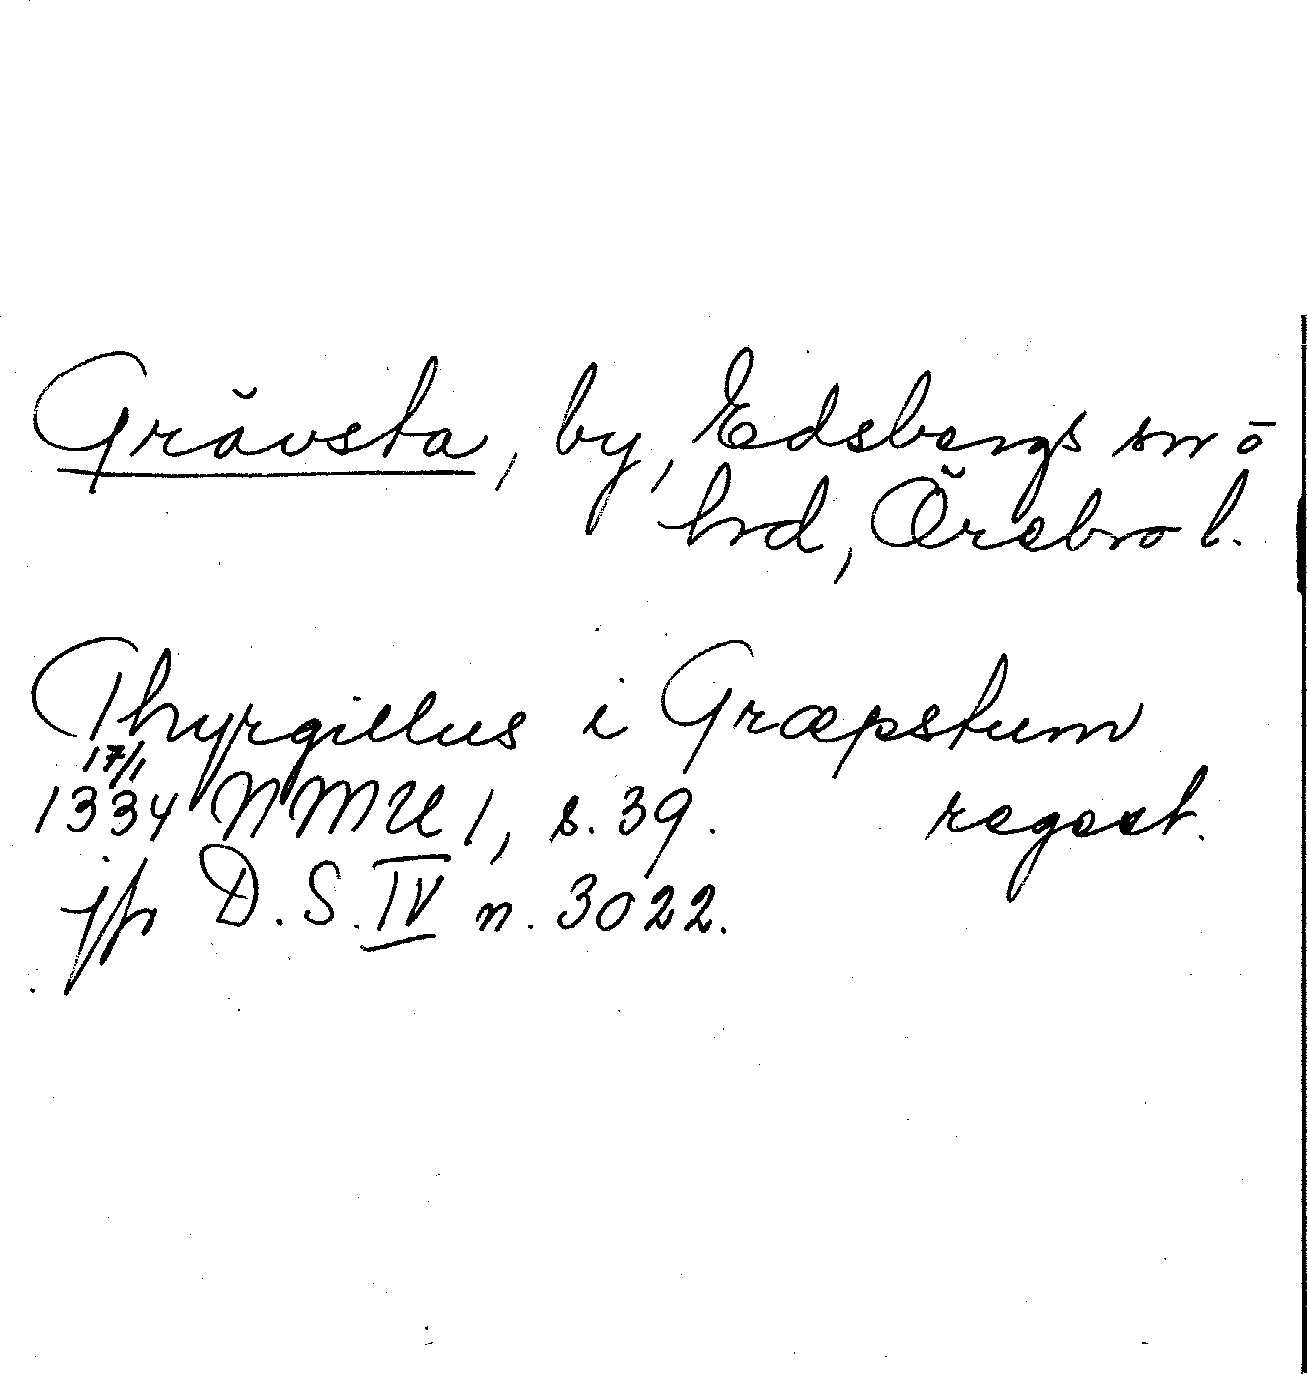 Grävsta, by, Edsbergs sn o
hrd, Örebro l.
Thyrgillus i Græpstum
17/1
1334 NMU 1, s. 39. regest.
jfr D.S. IV n. 3022.